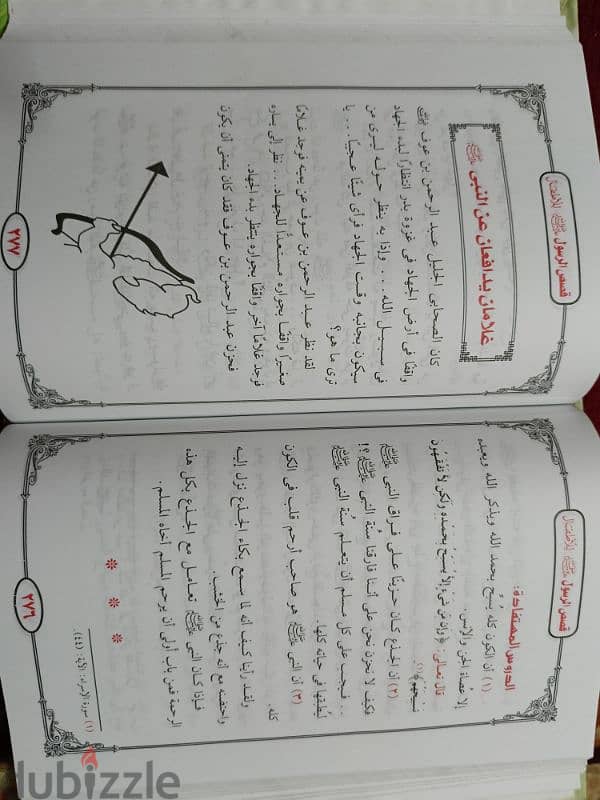 قصص الرسول ﷺ للأطفال
الدروس المستفادة:
(١) أن الكون كله يُسبح بحمد الله ويذكر الله ويعبده
إلا عُصاة الجن والإنس.
قال تعالى: ﴿وَإِن مِّن شَيْءٍ إِلاَّ يُسَبِّحُ بِحَمْدِهِ وَلَكِن لاَّ تَفْقَهُونَ
تَسْبِيحَهُمْ﴾(١).
(٢) أن الجذع كان حزينًا على فراق النبي ﷺ
فكيف لا نحزن نحن على أننا فارقنا سُنة النبي ﷺ؟!
.. فيجب على كل مسلم أن يتعلم سُنة النبي ﷺ
ليُطبقها في حياته كلها.
(٣) أن النبي ﷺ هو صاحب أرحم قلب في الكون
كله.
ولقد رأينا كيف أنه لما سمع بكاء الجذع نزل إليه
واحتضنه مع أنه جذع من الخشب.
فإذا كان النبي ﷺ تعامل مع الجذع بكل هذه
الرحمة فمن باب أولى أن يرحم المسلم أخاه المسلم.
* * *
(١) سورة الإسراء: الآية: (٤٤).
٢٧٦
قصص الرسول ﷺ للأطفال
غلامان يدافعان عن النبي ﷺ
كان الصحابي الجليل عبد الرحمن بن عوف
واقفًا في أرض الجهاد في غزوة بدر انتظارًا لبدء الجهاد
في سبيل الله ... وإذا به ينظر حوله ليرى من
سيكون بجانبه وقت الجهاد فرأى شيئًا عجيبًا ... يا
ترى ما هو؟
لقد نظر عبد الرحمن بن عوف عن يمينه فوجد غلامًا
صغيرًا واقفًا بجواره مستعدًا للجهاد ... ثم نظر إلى يساره
فوجد غلامًا آخر واقفًا بجواره ينتظر بدء الجهاد.
فحزن عبد الرحمن بن عوف فقد كان يتمنى أن يكون
٢٧٧
dubizzle